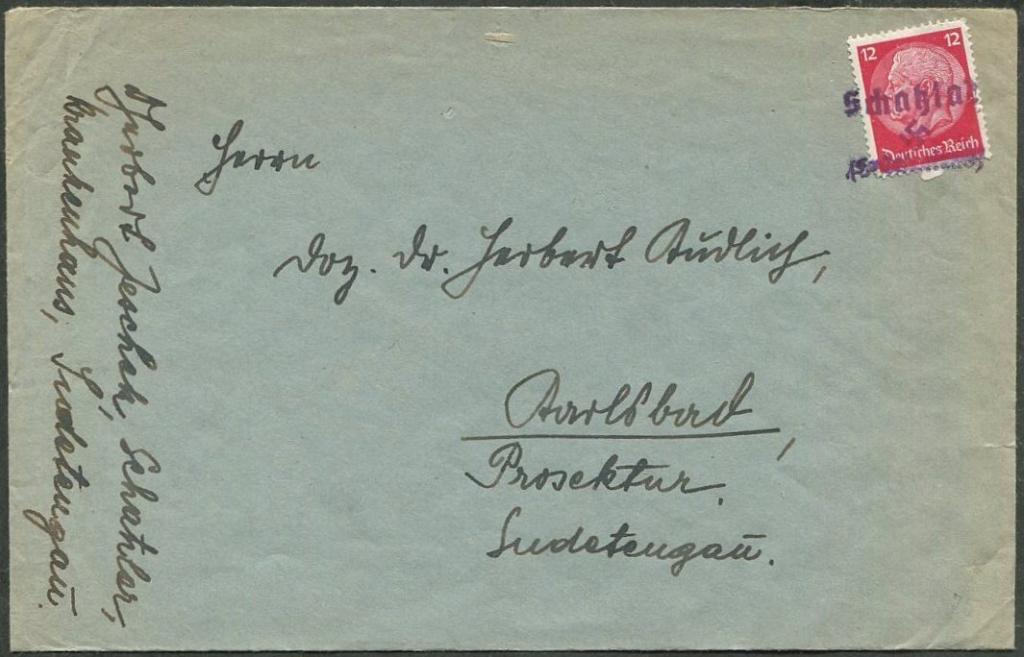 12 12
Schatzlar
Deutsches Reich
Herrn
Doz. Dr. Herbert Kudlich,
Karlsbad,
Prosektur.
Sudetengau.
Herbert Jeschek, Schatzlar,
Krankenhaus, Sudetengau.